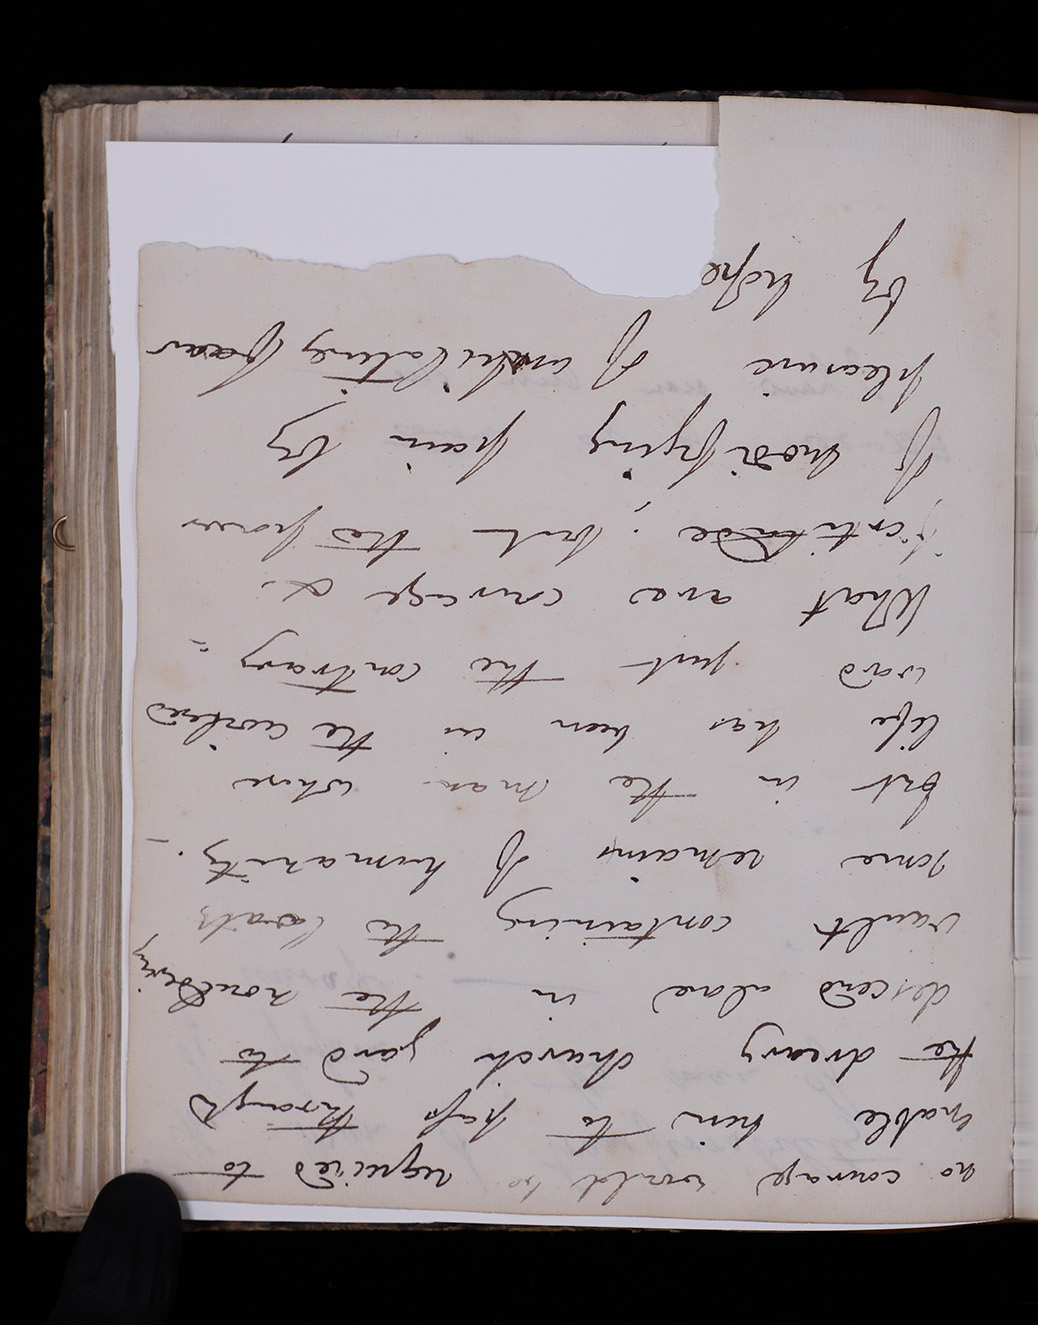 no courage would be required to
enable him to pass through
the dreary church yard to
descend alone in the mouldering
vault containing the loath
some remains of humanity. –
but in the man whose
life has been in the wicked
was just the contrary –
What are courage &.
fortitude; but the power
of modifying pain by
pleasure of annihilating fear
by hope